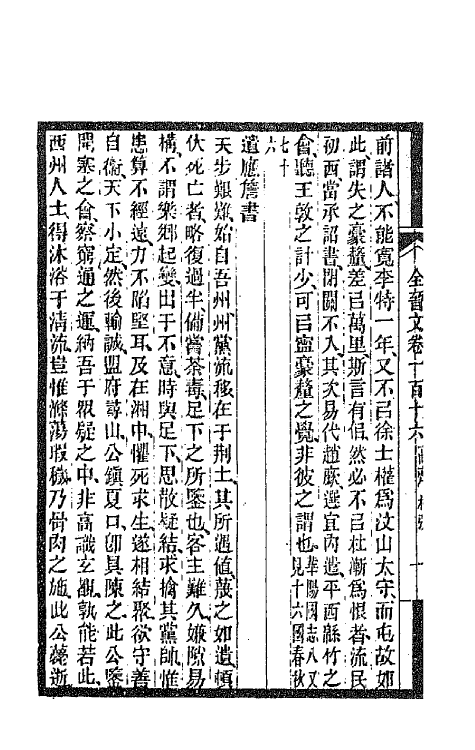 前諸人不能寬李特一年又不㠯徐士權爲汶山太守而屯故如
此謂失之豪釐差㠯萬里斯言有似然必不㠯杜漸爲恨者流民
初西當承詔書閉關不入其次易代趙廞選宜內遣平西緜竹之
會聽王敦之計少可㠯寧豪釐之覺非彼之謂也華陽國志八又見十六國春秋
七十六
遺應詹書
天步艱難始自吾州州黨流移在于荆土其所遇值蔑之如遺頓
伏死亡者略復過半備嘗荼毒足下之所鑒也客主難久嫌隙易
構不謂樂鄉起變出于不意時與足下思散疑結求擒其黨帥惟
患算不經遠力不陷堅耳及在湘中懼死求生遂相結聚欲守善
自衛天下小定然後輸誠盟府尋山公鎮夏口卽具陳之此公鑒
開塞之會察窮通之運納吾于眾疑之中非高識玄覩孰能若此
西州人士得沐浴于清流豈惟滌蕩瑕穢乃骨肉之施此公薨逝
全晉文卷一百十六